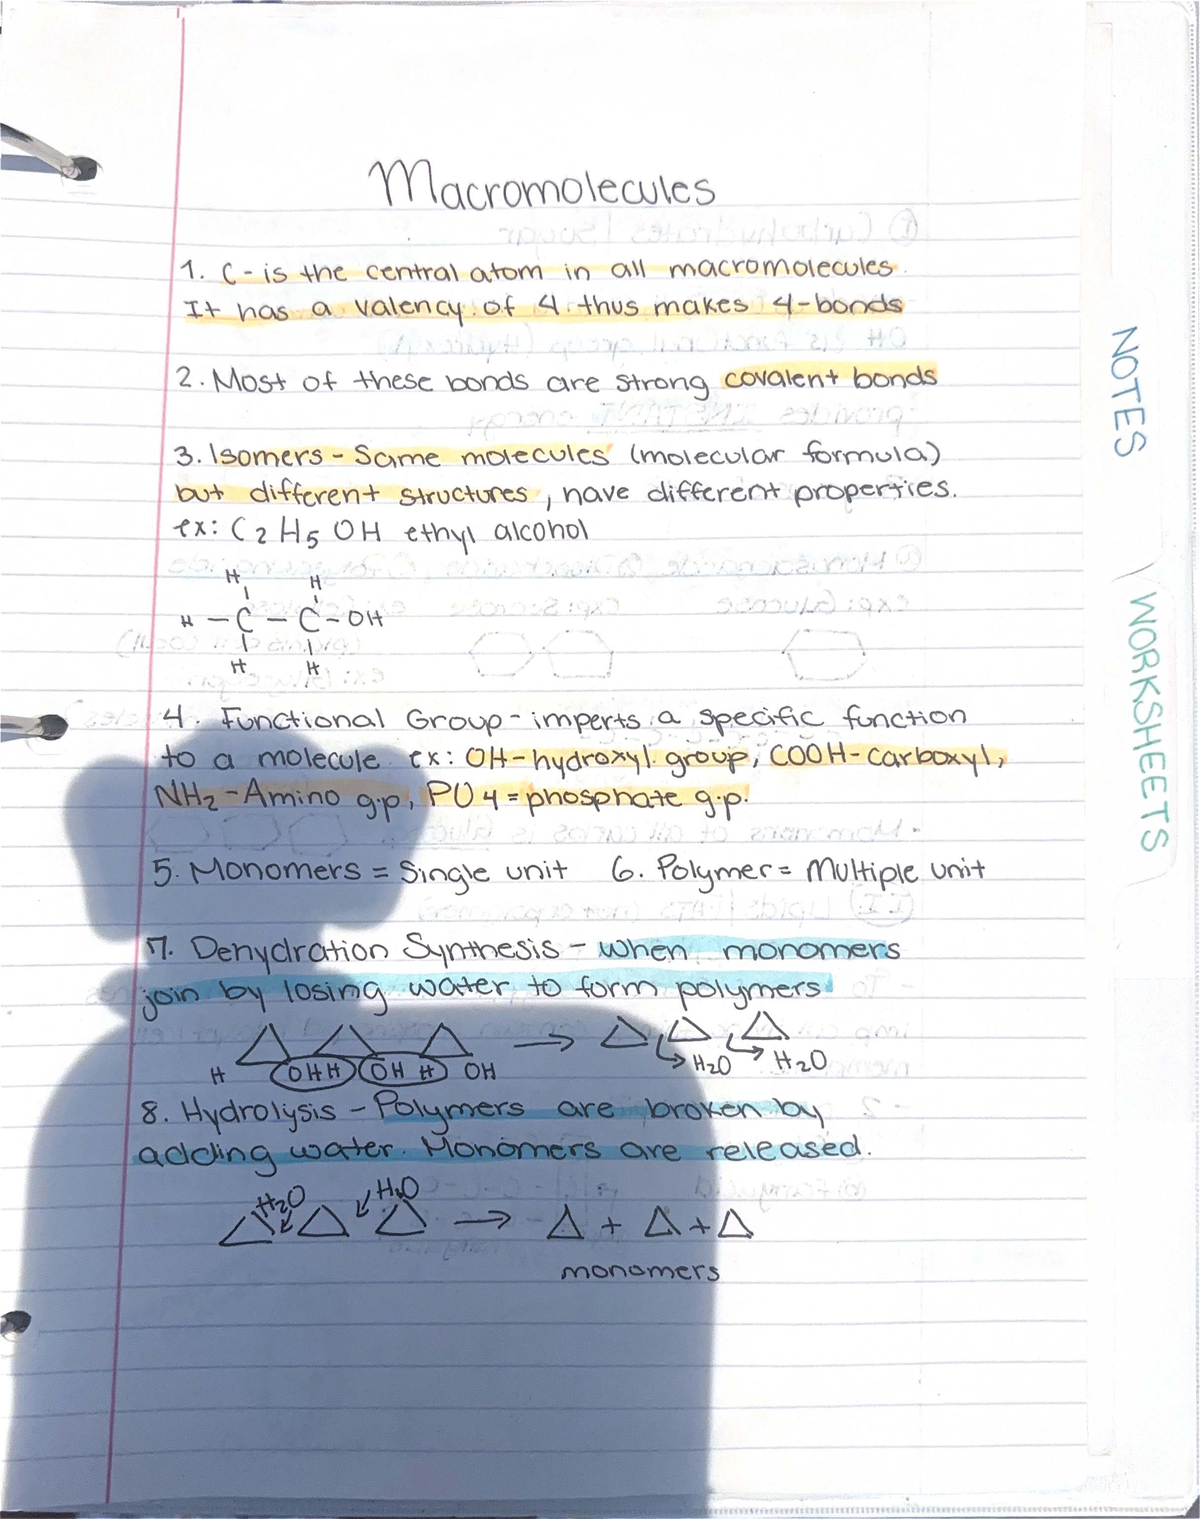 Macromolecules
1. C - is the central atom in all macromolecules.
It has a valency of 4 thus makes 4-bonds
2. Most of these bonds are strong covalent bonds
3. Isomers - Same molecules (molecular formula)
but different structures, have different properties.
ex: C2 H5 OH ethyl alcohol
H H
H - C - C - OH
H H
4. Functional Group - imperts a specific function
to a molecule ex: OH-hydroxyl group, COOH-carboxyl,
NH2 - Amino g.p, PO4 = phosphate g.p.
5. Monomers = Single unit 6. Polymer = Multiple unit
7. Dehydration Synthesis - when monomers
join by losing water to form polymers
H OH H OH H OH → H2O H2O
8. Hydrolysis - Polymers are broken by
adding water. Monomers are released.
H2O H2O → + +
monomers
NOTES
WORKSHEETS